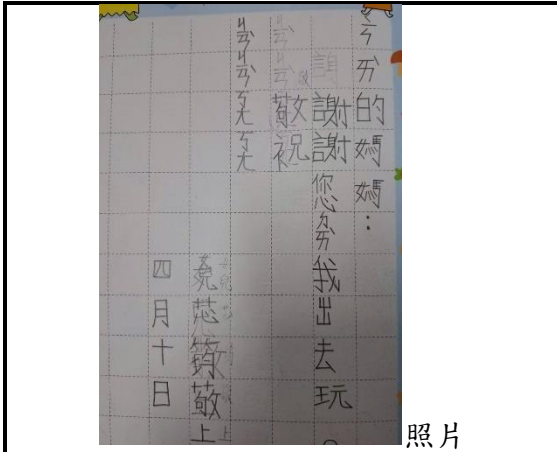 ㄑㄧㄣ ㄞˋ的媽媽：
謝謝您ㄉㄞˋ我出去玩。
敬祝
ㄐㄧㄢˋㄐㄧㄢˋㄎㄤㄎㄤ
敬上
四月十日
照片